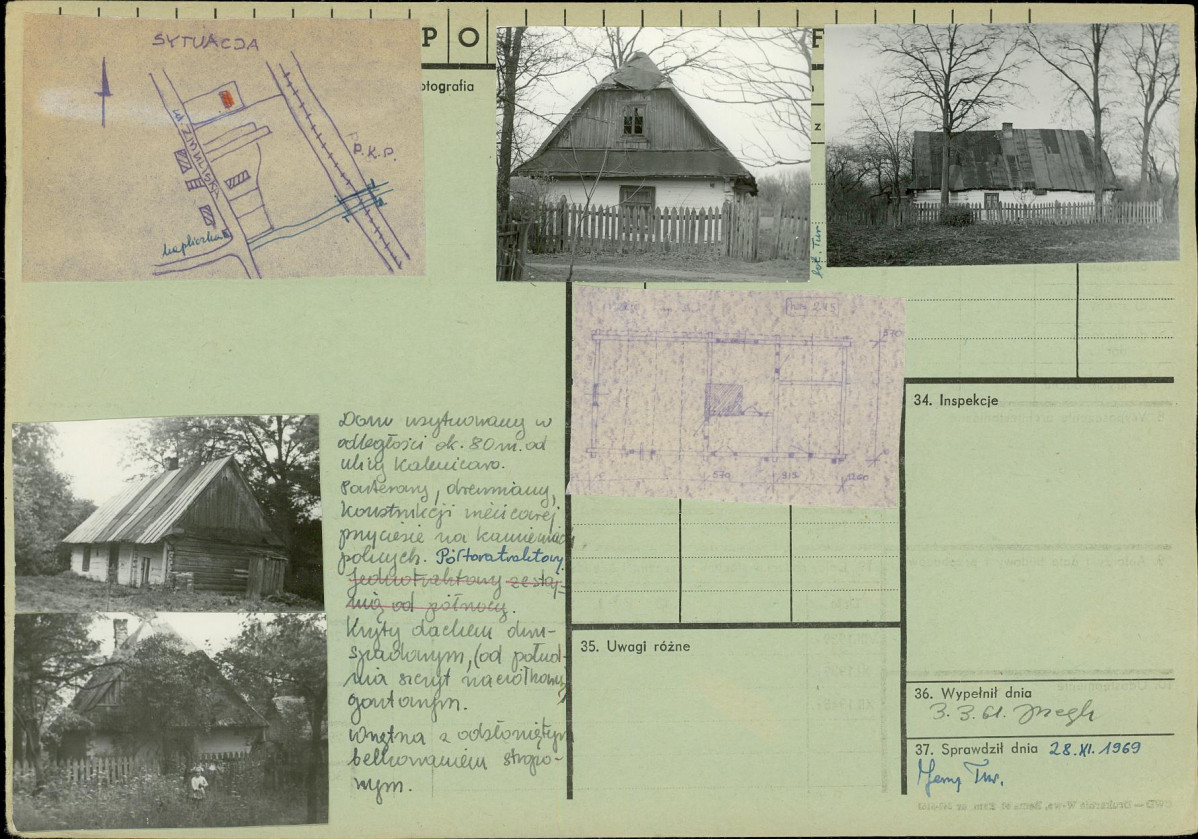 SYTUACJA
P.K.P.
kapliczka
P O
otografia
F
z
fot. Tur
570
570
915
1260
Dom usytuowany w
odległości ok. 80 m. od
ulicy
Parterowy, drewniany,
konstrukcji
przyciesie na kamieniach
polnych. Półtoratraktowy
Jednotraktowy ze staj-
nią od północy.
Kryty dachem dwu-
spadowym, (od połud-
nia szczyt naczółkowy)
gontowym.
Wnętrza z odsłoniętym
belkowaniem stropo-
wym.
34. Inspekcje
35. Uwagi różne
36. Wypełnił dnia
3. 3. 61.
37. Sprawdził dnia 28. XI. 1969
Jerzy Tur.